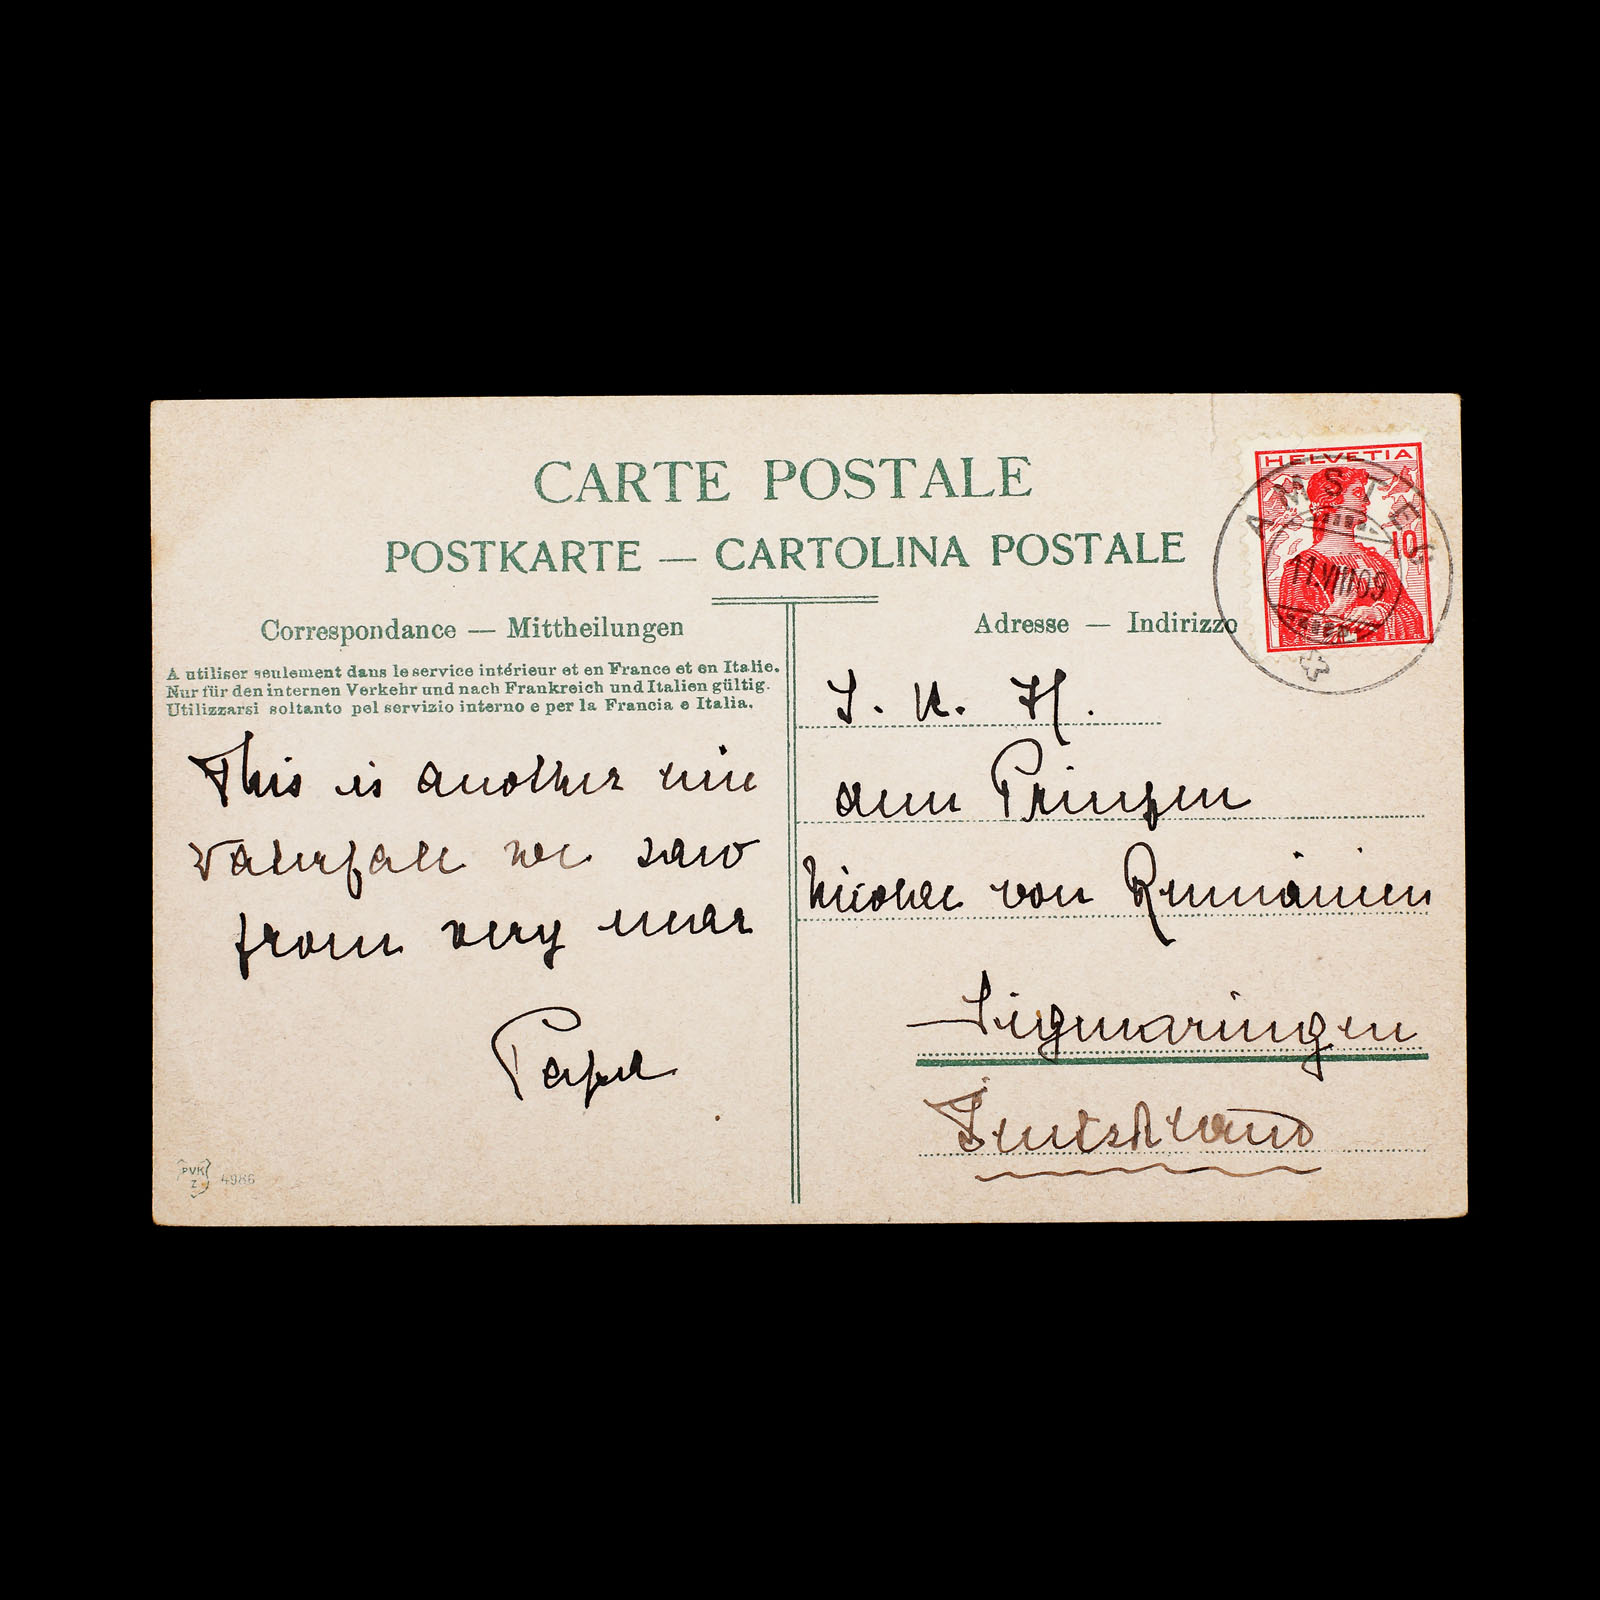 CARTE POSTALE
POSTKARTE — CARTOLINA POSTALE
Correspondance — Mittheilungen
A utiliser seulement dans le service intérieur et en France et en Italie.
Nur für den internen Verkehr und nach Frankreich und Italien gültig.
Utilizzarsi soltanto pel servizio interno e per la Francia e Italia.
This is another nice
waterfall we saw
from very near
Papa
PVK
Z
4986
Adresse — Indirizzo
HELVETIA
10
AMSTEG
11.VIII.09
S. K. H.
dem Prinzen
Nicolae von Rumänien
Sigmaringen
Deutschland